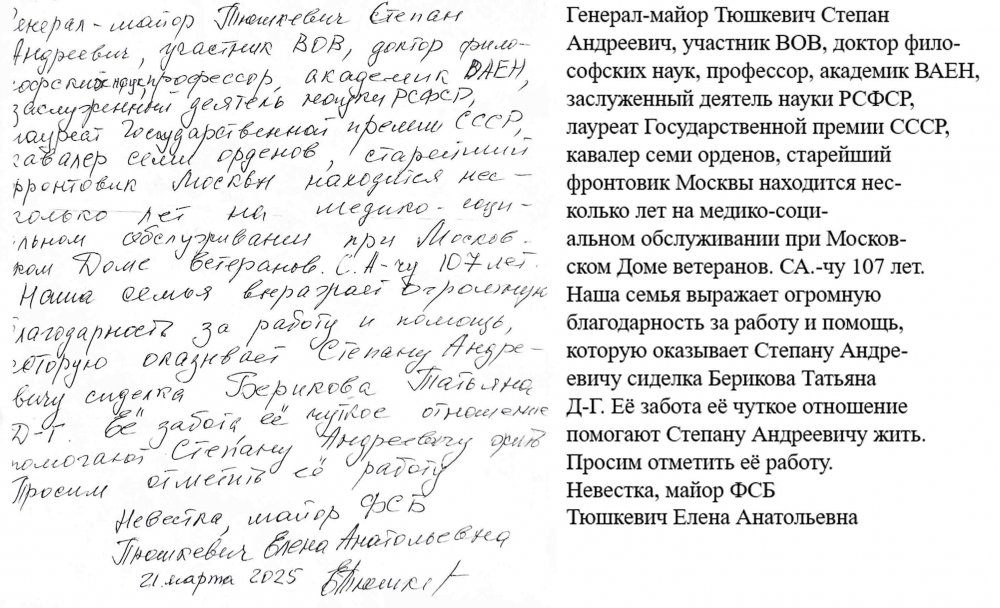 енерал-майор Тюшкевич Степан
Андреевич, участник ВОВ, доктор фило-
софских наук, профессор, академик ВАЕН,
заслуженный деятель науки РСФСР,
лауреат Государственной премии СССР,
кавалер семи орденов, старейший
фронтовик Москвы находится нес-
колько лет на медико-соци-
альном обслуживании при Москов-
ском Доме ветеранов. С.А-чу 107 лет.
Наша семья выражает огромную
благодарность за работу и помощь,
которую оказывает Степану Андре-
евичу сиделка Берикова Татьяна
Д-Г. Её забота её чуткое отношение
помогают Степану Андреевичу жить
Просим отметить её работу
Невестка, майор ФСБ
Тюшкевич Елена Анатольевна
21 марта 2025
Генерал-майор Тюшкевич Степан
Андреевич, участник ВОВ, доктор фило-
софских наук, профессор, академик ВАЕН,
заслуженный деятель науки РСФСР,
лауреат Государственной премии СССР,
кавалер семи орденов, старейший
фронтовик Москвы находится нес-
колько лет на медико-соци-
альном обслуживании при Москов-
ском Доме ветеранов. СА.-чу 107 лет.
Наша семья выражает огромную
благодарность за работу и помощь,
которую оказывает Степану Андре-
евичу сиделка Берикова Татьяна
Д-Г. Её забота её чуткое отношение
помогают Степану Андреевичу жить.
Просим отметить её работу.
Невестка, майор ФСБ
Тюшкевич Елена Анатольевна